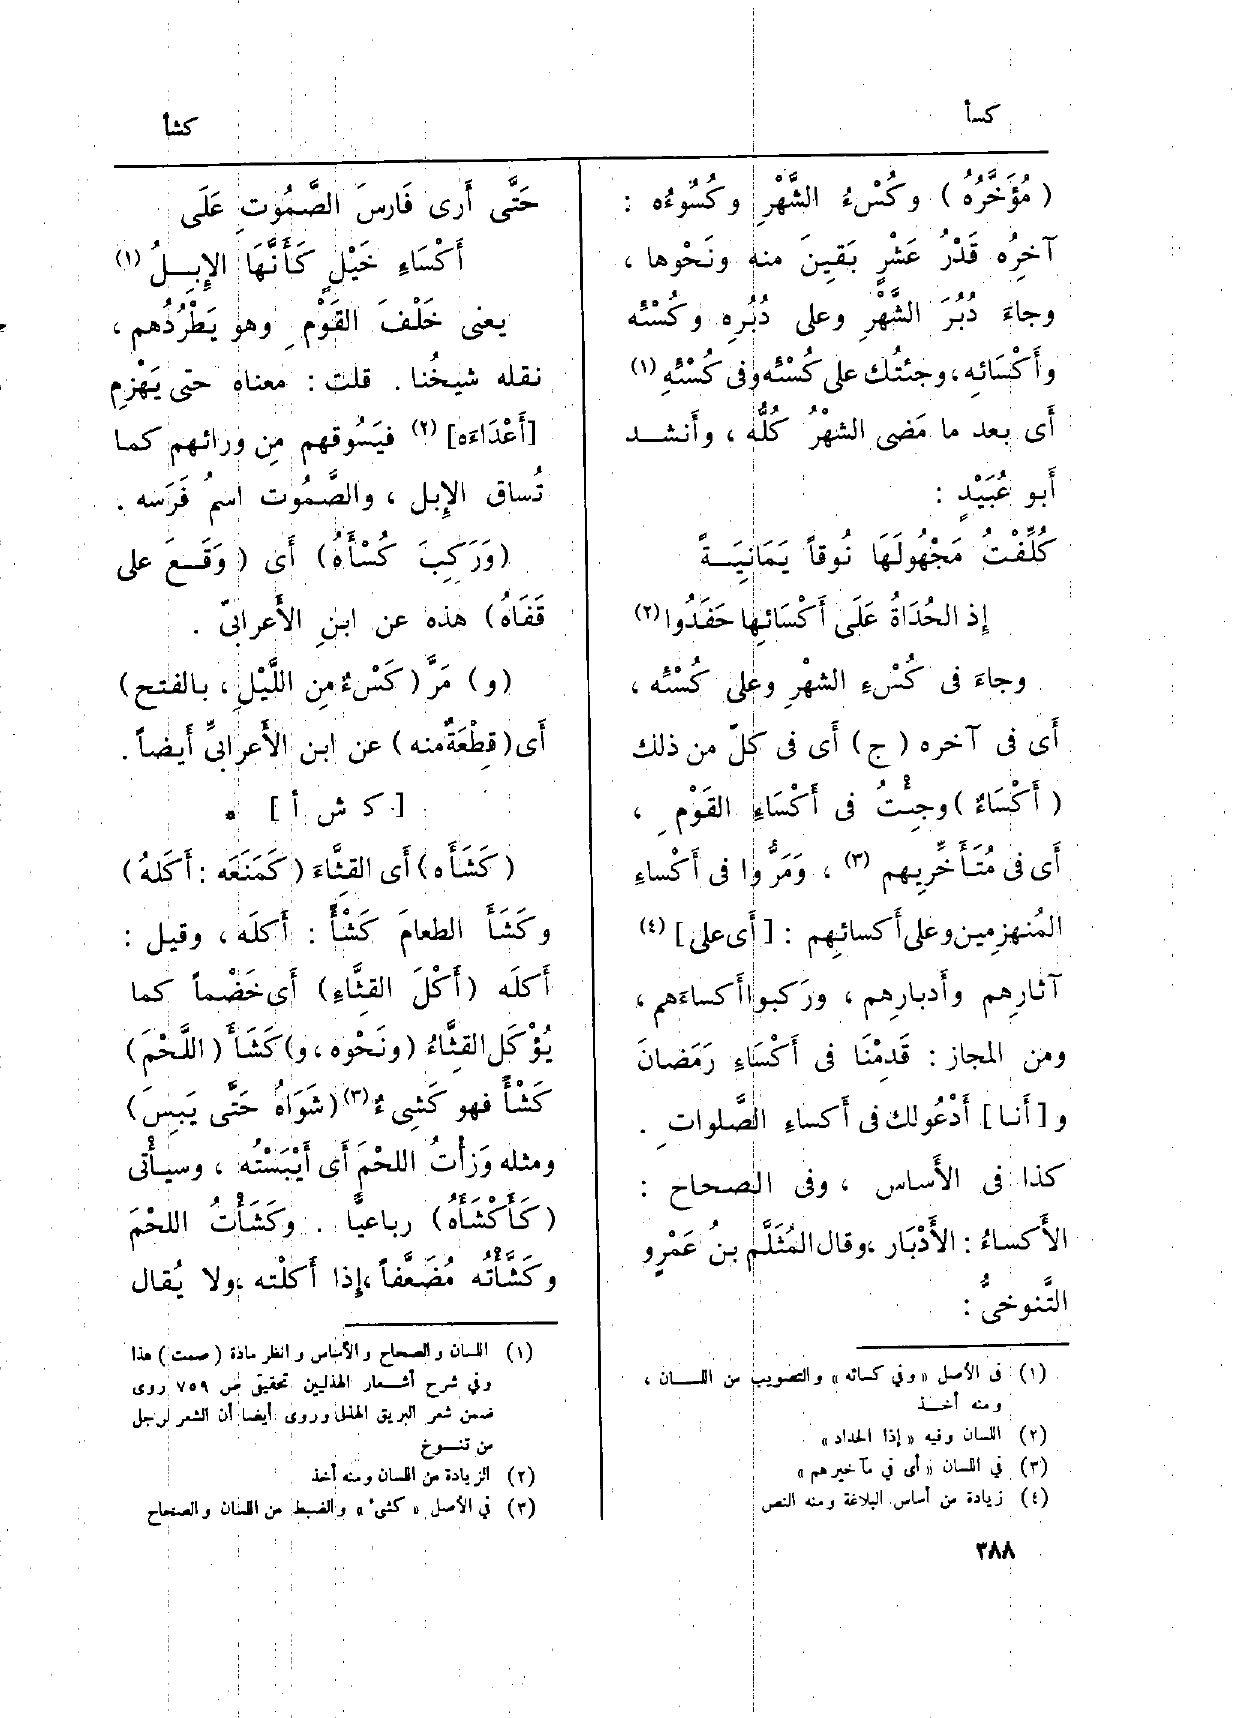 كسأ
كشأ
(مُؤَخَّرُهُ) وكُسْءُ الشَّهْرِ وكُسُوءُه :
آخِرُه قَدْرُ عَشْرٍ بَقِينَ منه ونَحْوها ،
وجاءَ دُبُرَ الشَّهْرِ وعلى دُبُرِه وكُسْئه
وأَكْسَائه، وجئتُك على كُسْئه وفى كُسْئهِ (١)
أَى بعد ما مَضى الشهرُ كُلُّه ، وأَنشد
أَبو عُبَيْدٍ :
كُلِّفْتُ مَجْهُولَهَا نُوقاً يَمَانِيَةً
إِذ الحُدَاةُ عَلَى أَكْسَائِها حَفَدُوا (٢)
وجاءَ فى كُسْءِ الشهْرِ وعلى كُسْئه ،
أَى فى آخره (ج) أَى فى كلّ من ذلك
(أَكْسَاءٌ) وجِئْتُ فى أَكْسَاءِ القَوْمِ ،
أَى فى مُتَأَخِّرِيهم (٣) ، وَمَرُّوا فى أَكْساءِ
المُنهزِمين وعلى أَكسائهم : [أَى على] (٤)
آثارِهم وأَدبارِهم ، ورَكبوا أَكساءَهم ،
ومن المجاز : قَدِمْنَا فى أَكْسَاءِ رَمَضانَ
و[أَنا] أَدْعُو لك فى أَكساءِ الصَّلواتِ .
كذا فى الأَساس ، وفى الصحاح :
الأَكساءُ : الأَدْبَار ، وقال المُثَلَّم بنُ عَمْرٍو
التَّنوخىُّ :
(١) فى الأصل «وفي كسائه» والتصويب من اللسان ،
ومنه أخذ
(٢) اللسان وفيه «إذا الحداد»
(٣) في اللسان «أى في مآخيرهم»
(٤) زيادة من أساس البلاغة ومنه النص
حَتَّى أَرى فَارِسَ الصَّمُوتِ عَلَى
أَكْسَاءِ خَيْلٍ كَأَنَّهَا الإِبِلُ (١)
يعنى خَلْفَ القَوْمِ وهو يَطْرُدُهم ،
نقله شيخُنا. قلت : معناه حتى يَهْزِم
[أَعْدَاءَه] (٢) فيَسُوقهم مِن ورائهم كما
تُساق الإِبل ، والصَّمُوت اسمُ فَرَسه .
(وَرَكِبَ كُسْأَهُ) أَى (وَقَعَ على
قَفَاهُ) هذه عن ابنِ الأَعرابىّ .
(و) مَرَّ (كَسْءٌ مِن اللَّيْلِ ، بالفتح)
أَى (قِطْعَةٌ منه) عن ابن الأَعرابىِّ أَيضاً.
[ك ش أ] *
(كَشَأَه) أَى القِثَّاءَ (كَمَنَعَه : أَكَلَهُ)
وكَشَأَ الطعامَ كَشْأً : أَكله ، وقيل :
أَكلَه (أَكْلَ القِثَّاءِ) أَى خَضْماً كما
يُؤْكَل القِثَّاءُ (ونَحْوِه، و) كَشَأَ (اللَّحْمَ)
كَشْأً فهو كَشِىءٌ (٣) (شَوَاهُ حَتَّى يَبِسَ)
ومثله وَزَأْتُ اللحْمَ أَى أَيْبَسْتُه ، وسيأْتى
(كَأَكْشَأَهُ) رباعيًّا . وكَشَأْتُ اللحْمَ
وكَشَّأْتُه مُضَعَّفاً، إِذا أَكلْته، ولا يُقال
(١) اللسان والصحاح والأساس وانظر مادة (صمت) هذا
وفي شرح أشعار الهذليين تحقيق ص ٧٥٩ روى
ضمن شعر البريق الهذلى وروى أيضا أن الشعر لرجل
من تنوخ
(٢) الزيادة من اللسان ومنه أخذ
(٣) في الأصل «كشىْ» والضبط من اللسان والصحاح
٣٨٨